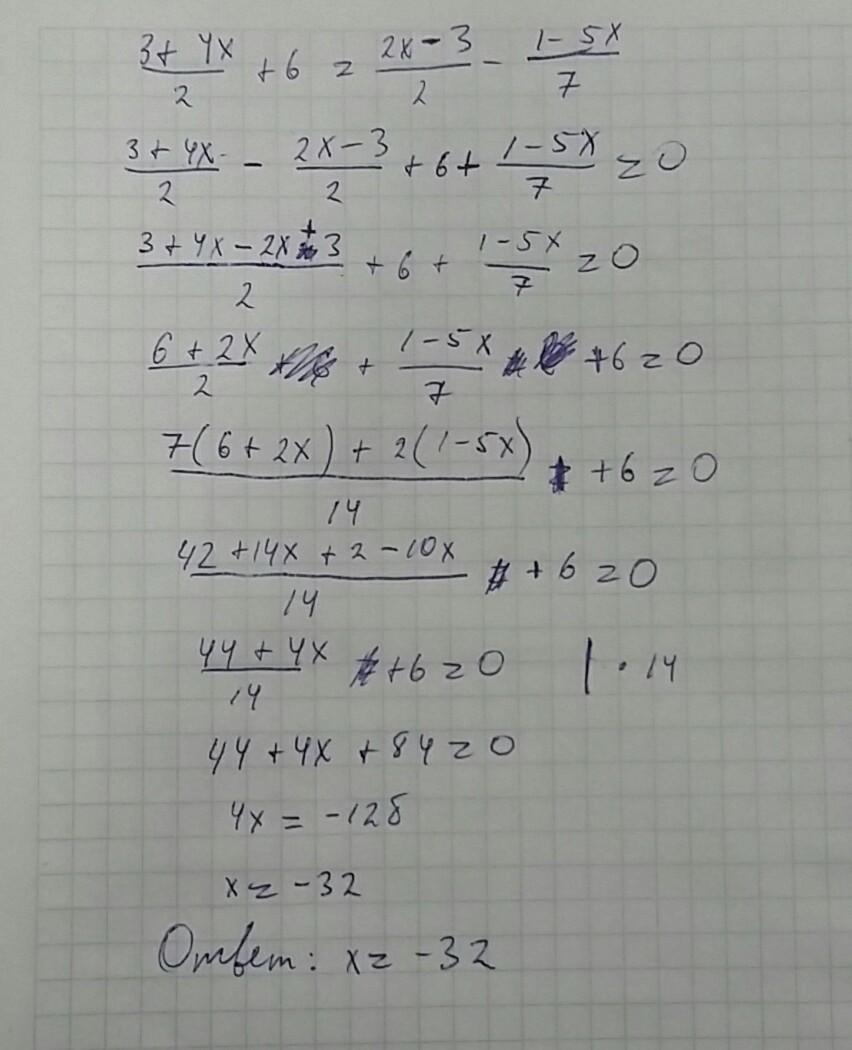 (3 + 4x)/2 + 6 = (2x - 3)/2 - (1 - 5x)/7
(3 + 4x)/2 - (2x - 3)/2 + 6 + (1 - 5x)/7 = 0
(3 + 4x - 2x + 3)/2 + 6 + (1 - 5x)/7 = 0
(6 + 2x)/2 + (1 - 5x)/7 + 6 = 0
(7(6 + 2x) + 2(1 - 5x))/14 + 6 = 0
(42 + 14x + 2 - 10x)/14 + 6 = 0
(44 + 4x)/14 + 6 = 0 | · 14
44 + 4x + 84 = 0
4x = -128
x = -32
Ответ: x = -32